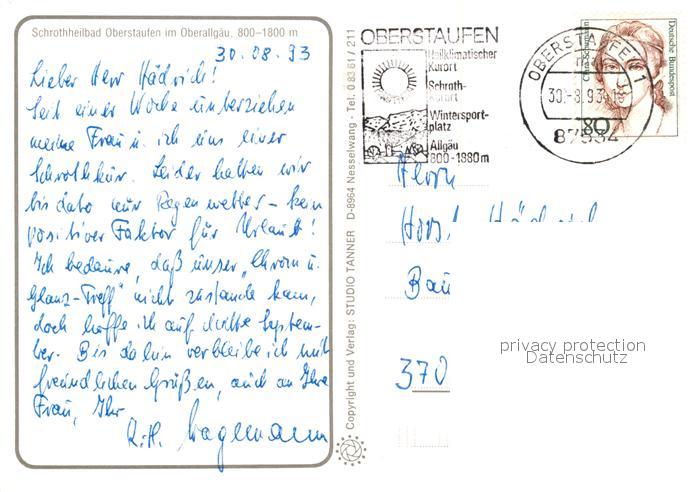 Schrothheilbad Oberstaufen im Oberallgäu, 800–1800 m
30.08.93
Lieber Herr Hädrich!
Seit einer Woche unterziehen
meine Frau u. ich uns einer
Schrothkur. Leider hatten wir
bis dato nur Regenwetter – kein
positiver Faktor für Urlaub!
Ich bedaure, daß unser "Chrom u.
Glanz-Treff" nicht zustande kam,
doch hoffe ich auf dritte Septem-
ber. Bis dahin verbleibe ich mit
freundlichen Grüßen, auch an Ihre
Frau, Ihr
Copyright und Verlag: STUDIO TANNER D-8964 Nesselwang - Tel. 0 83 61 / 211
OBERSTAUFEN
Heilklimatischer
Kurort
Schroth-
kurort
Wintersport-
platz
Allgäu
800-1880m
OBERSTAUFEN 1
30.-8.93
87534
Deutsche Bundespost
80
Herrn
Horst
370
privacy protection
Datenschutz